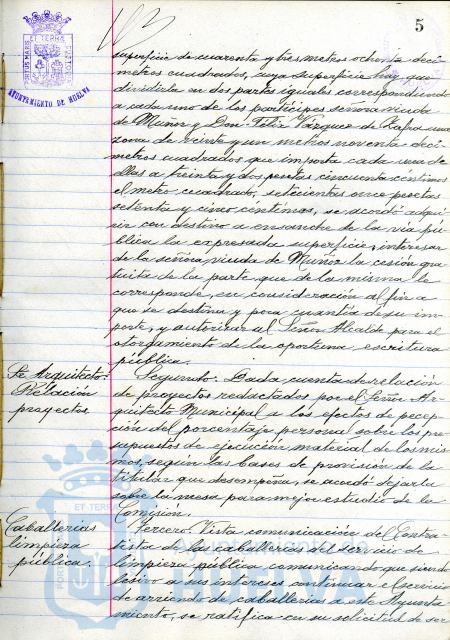 5
PORTUS MARIS ET TERRÆ CUSTODIA
AYUNTAMIENTO DE HUELVA
superficie de cuarenta y tres metros ochenta decí
metros cuadrados, cuya superficie hay que
dividirla en dos partes iguales correspondiendo
a cada uno de los partícipes señora viuda
de Muñoz y Don Felix Vázquez de Zafra una
zona de veinte y un metros noventa decí
metros cuadrados que importa cada una de
ellas a treinta y dos pesetas cincuenta céntimos
el metro cuadrado, setecientas once pesetas
setenta y cinco céntimos, se acordó adqui
rir con destino a ensanche de la vía pú
blica la expresada superficie, interesar
de la señora viuda de Muñoz la cesión gra
tuita de la parte que de la misma le
corresponde, en consideración al fin a
que se destina y poca cuantía de su im
porte, y autorizar al Señor Alcalde para el
otorgamiento de la oportuna escritura
pública.
Sr. Arquitecto:
Relación
proyectos
Segundo: Dada cuenta de relación
de proyectos redactados por el Señor Ar
quitecto Municipal a los efectos de percep
ción del porcentaje personal sobre los pre
supuestos de ejecución material de los mis
mos, según las bases de provisión de la
titular que desempeña, se acordó dejarlo
sobre la mesa para mejor estudio de la
Comisión.
Caballerías
limpieza
pública.
Tercero: Vista comunicación del Contra
tista de las caballerías del servicio de
limpieza pública comunicando que siendo
lesivo a sus intereses continuar el servicio
de arriendo de caballerías a este Ayunta
miento, se ratifica en su solicitud de ser